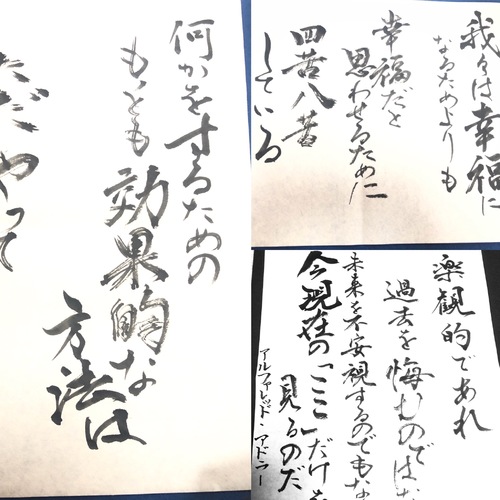 何かをするための
もっとも
効果的な
方法は
ただ
やって
我々は幸福に
なるためよりも
幸福だと
思わせるために
四苦八苦
している
楽観的であれ
過去を悔むのでは
未来を不安視するのでもな
今現在の「ここ」だけを
見るのだ
アルファレッド・アドラー